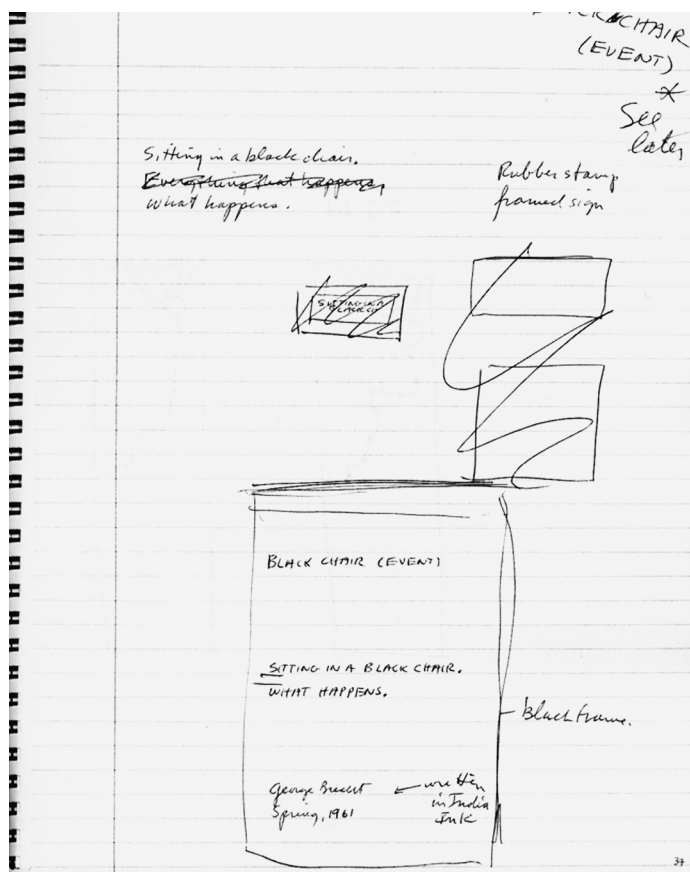 BLACK CHAIR
(EVENT)
*
See
later
Sitting in a black chair.
Everything that happens,
what happens.
Rubber stamp
framed sign
SITTING IN A
BLACK
BLACK CHAIR (EVENT)
SITTING IN A BLACK CHAIR.
WHAT HAPPENS.
Black frame.
George Brecht
Spring, 1961
← written
in India
Ink
37